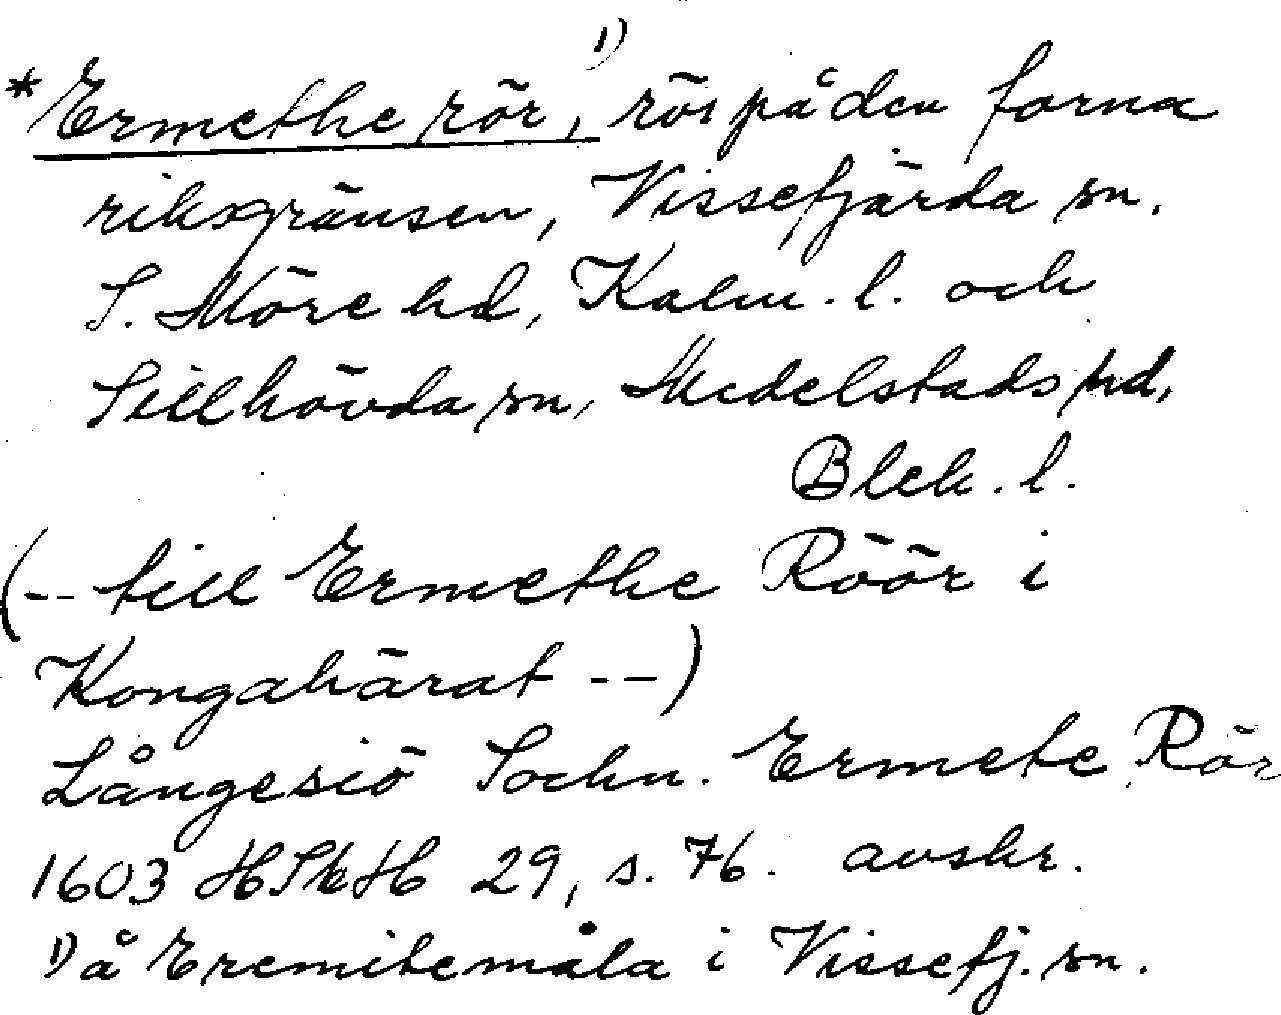 *Ermethe rör,¹⁾ rös på den forna
riksgränsen, Vissefjärda sn.
S. Möre hd, Kalm. l. och
Sillhövda sn, Medelstads hd,
Blek. l.
(-- till Ermethe Röör i
Kongahärat --)
Långesiö Sochn. Ermete Rör
1603 HSkH 29, s. 76. avskr.
¹⁾ å Eremitemåla i Vissefj. sn.